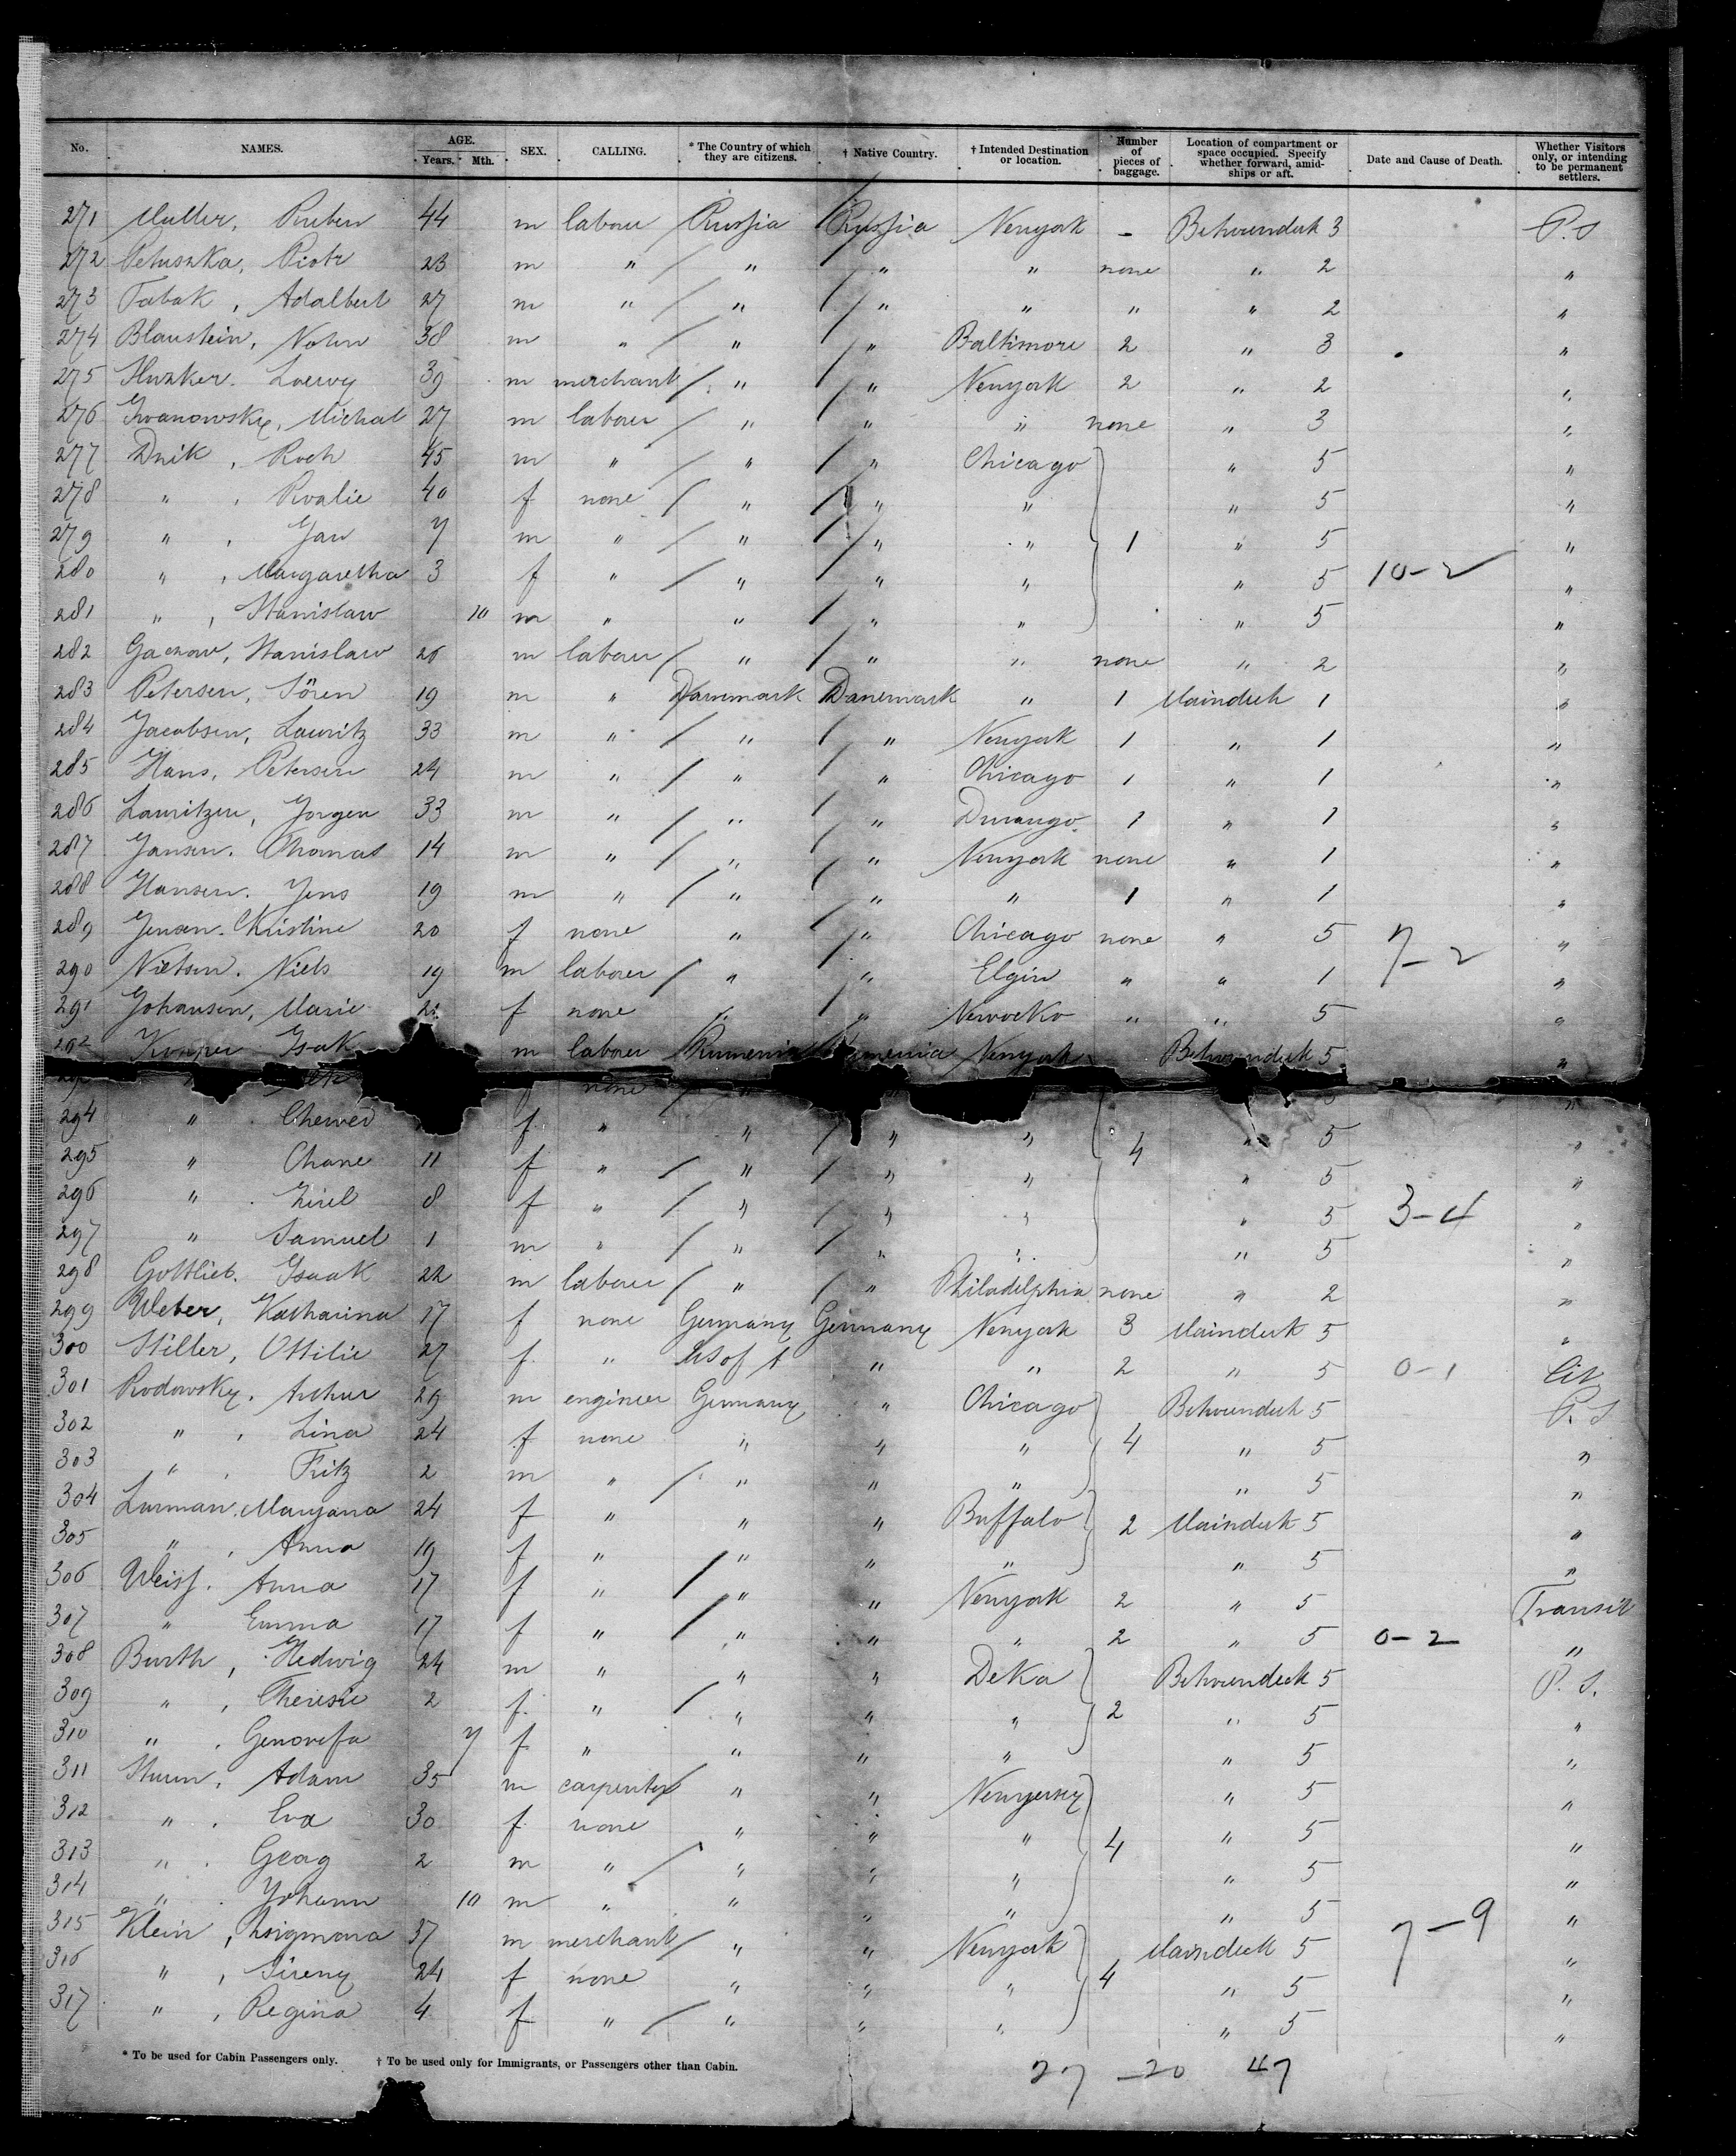 No. NAMES. AGE. Years. Mth. SEX. CALLING. * The Country of which they are citizens. † Native Country. † Intended Destination or location. Number of pieces of baggage. Location of compartment or space occupied. Specify whether forward, amidships or aft. Date and Cause of Death. Whether Visitors only, or intending to be permanent settlers.
271 Muller, Ruben 44 m labourer Russia Russia Newyork - Betweendeck 3 P.S
272 Petuszka, Piotr 23 m " " " " none " 2 "
273 Tabak, Adalbert 27 m " " " " " " 2 "
274 Blaustein, 38 m " " " Baltimore 2 " 3 "
275 39 m merchant " " Newyork 2 " 2 "
276 Iwanowsky, Michal 27 m labourer " " " none " 3 "
277 Dzik, Roch 45 m " " " Chicago " 5 "
278 " , Rosalie 40 f none " " " " 5 "
279 " , Jan 7 m " " " " 1 " 5 "
280 " , Margaretha 3 f " " " " " 5 10-2 "
281 " , Stanislaw 10 m " " " " " 5 "
282 Stanislaw 26 m labourer " " " none " 2 "
283 Petersen, Sören 19 m " Danemark Danemark " 1 Maindeck 1 "
284 Jacobsen, Lauritz 33 m " " " Newyork 1 " 1 "
285 Hans, Petersen 24 m " " " Chicago 1 " 1 "
286 Lauritzen, Jorgen 33 m " " " Durango 1 " 1 "
287 Jansen, Thomas 14 m " " " Newyork none " 1 "
288 Hansen, Jens 19 m " " " " 1 " 1 "
289 Jensen, Christine 20 f none " " Chicago none " 5 7-2 "
290 Nielsen, Niels 19 m labourer " " Elgin " " 1 "
291 Johansen, Marie f none " " " " 5 "
292 Isak m labourer Rumenia Newyork Betweendeck 5 "
none "
294 " f " " " " 4 " 5 "
295 " Chane 11 f " " " " " 5 "
296 " Zirel 8 f " " " " " 5 3-4 "
297 " Samuel 1 m " " " " " 5 "
298 Gottlieb, Isaak 22 m labourer " " Philadelphia none " 2 "
299 Weber, Katharina 17 f none Germany Germany Newyork 3 Maindeck 5 "
300 Stiller, Ottilie 27 f " US of A " " 2 " 5 0-1 Cit
301 Rodowsky, Arthur 29 m engineer Germany " Chicago Betweendeck 5 P.S
302 " , Lina 24 f none " " " 4 " 5 "
303 " , Fritz 2 m " " " " " 5 "
304 Lurman, Maryana 24 f " " " Buffalo 2 Maindeck 5 "
305 " , Anna 19 f " " " " " 5 "
306 Weiss, Anna 17 f " " " Newyork 2 " 5 Transit
307 " Emma 17 f " " " " 2 " 5 0-2 "
308 Burth, Hedwig 24 m " " " DeKa Betweendeck 5 P.S.
309 " , Theresie 2 f " " " " 2 " 5 "
310 " , Genovefa 7 f " " " " " 5 "
311 Adam 35 m carpenter " " Newyersey " 5 "
312 " , Eva 30 f none " " " 4 " 5 "
313 " , Georg 2 m " " " " " 5 "
314 " , Johann 10 m " " " " " 5 "
315 Klein, 37 m merchant " " Newyork Maindeck 5 7-9 "
316 " , 24 f none " " " 4 " 5 "
317 " , Regina 4 f " " " " " 5 "
* To be used for Cabin Passengers only. † To be used only for Immigrants, or Passengers other than Cabin.
27 -20 47